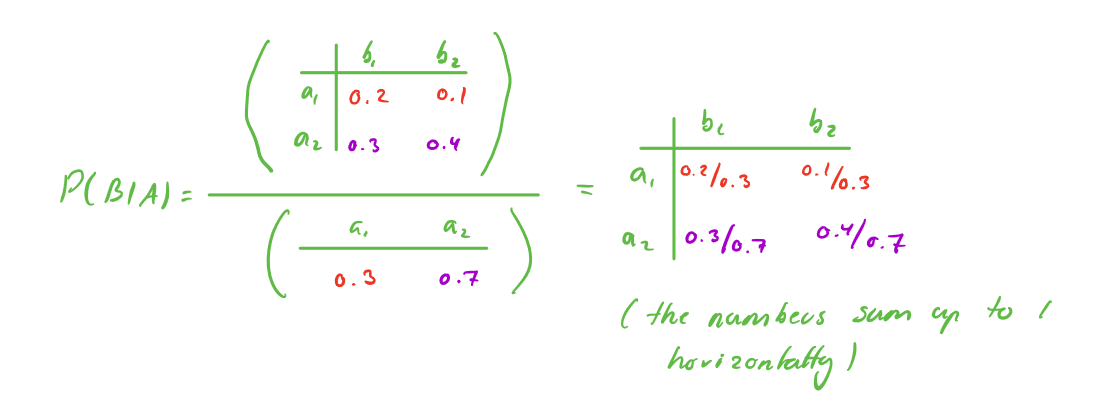 b₁ b₂
a₁ 0.2 0.1
a₂ 0.3 0.4
P(B|A) =
a₁ a₂
0.3 0.7
=
b₁ b₂
a₁ 0.2/0.3 0.1/0.3
a₂ 0.3/0.7 0.4/0.7
(the numbers sum up to 1
horizontally)